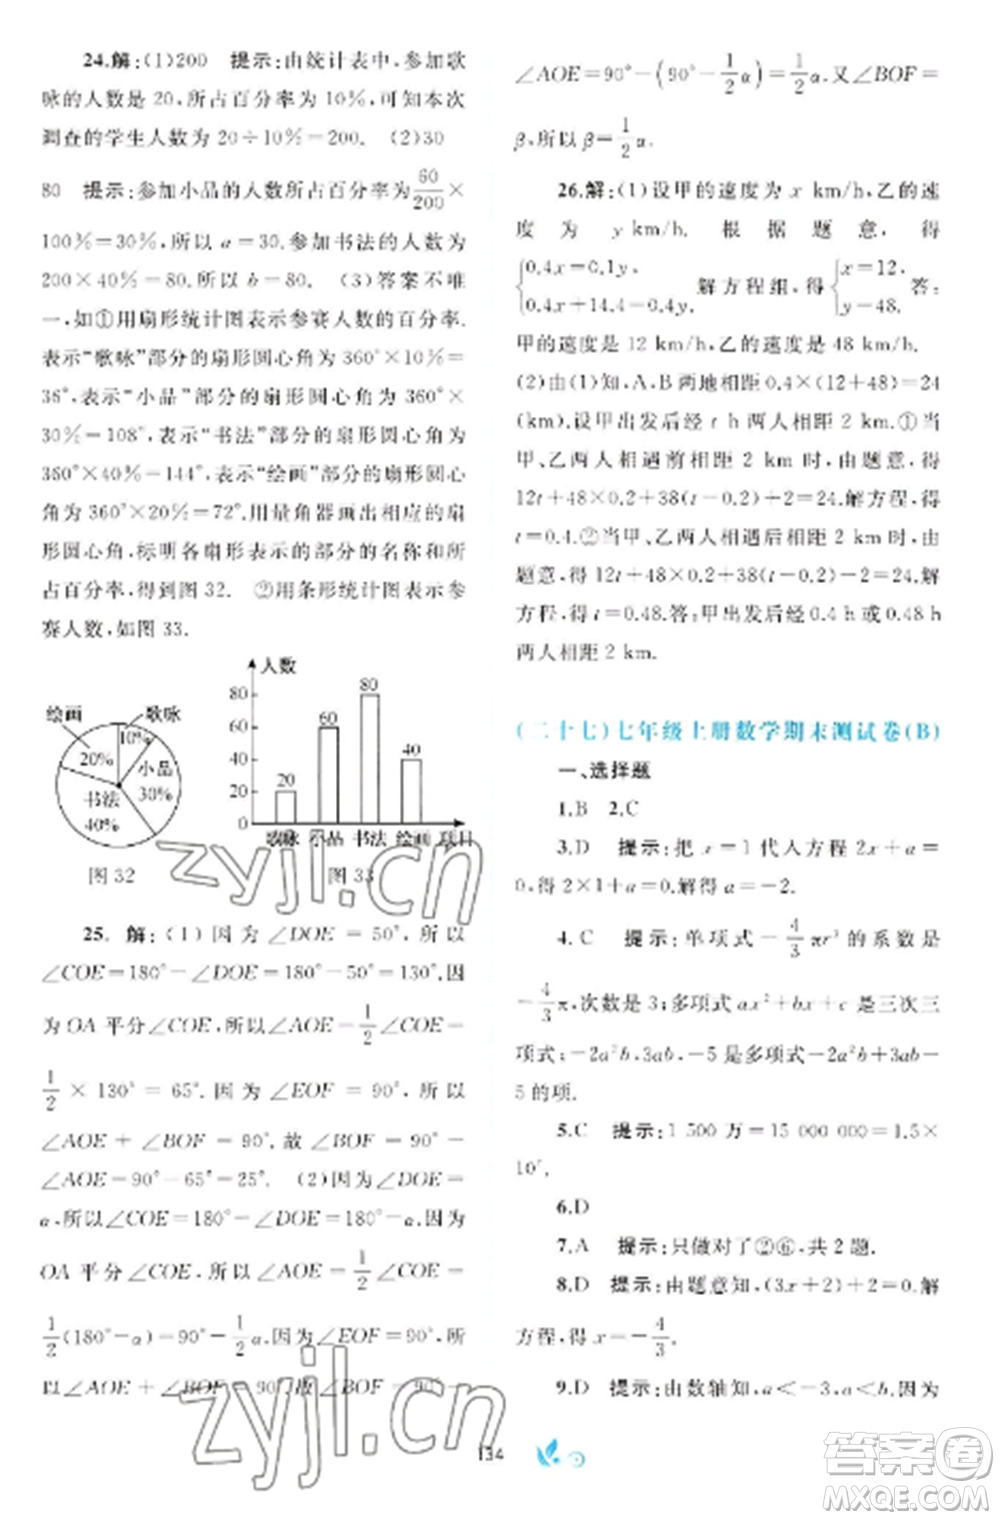 24.解:(1)200 提示:由统计表中,参加歌
咏的人数是 20,所占百分率为 10%,可知本次
调查的学生人数为 20÷10%=200. (2)30
80 提示:参加小品的人数所占百分率为60/200×
100%=30%,所以 a=30.参加书法的人数为
200×40%=80.所以 b=80. (3)答案不唯
一,如①用扇形统计图表示参赛人数的百分率.
表示“歌咏”部分的扇形圆心角为 360°×10%=
36°,表示“小品”部分的扇形圆心角为 360°×
30%=108°,表示“书法”部分的扇形圆心角为
360°×40%=144°,表示“绘画”部分的扇形圆心
角为 360°×20%=72°.用量角器画出相应的扇
形圆心角,标明各扇形表示的名称和所
占百分率,得到图 32. ②用条形统计图表示参
赛人数,如图 33.
绘画 歌咏
10%
20% 小品
书法 30%
40%
图 32
人数
80 80
60 60
40 40
20 20
0 歌咏 小品 书法 绘画 项目
图 33
25. 解:(1)因为∠DOE=50°,所以
∠COE=180°-∠DOE=180°-50°=130°.因
为 OA 平分∠COE,所以∠AOE=1/2∠COE=
1/2×130°=65°.因为∠EOF=90°,所以
∠AOE+∠BOF=90°.故∠BOF=90°-
∠AOE=90°-65°=25°. (2)因为∠DOE=
α,所以∠COE=180°-∠DOE=180°-α.因为
OA 平分∠COE,所以∠AOE=1/2∠COE=
1/2(180°-α)=90°-1/2α.因为∠EOF=90°,所
以∠AOE+∠BOF=90°.故∠BOF=90°-
∠AOE=90°-(90°-1/2α)=1/2α.又∠BOF=
β,所以 β=1/2α.
26.解:(1)设甲的速度为 x km/h,乙的速
度为 y km/h.根据题意,得
{0.4x=0.1y, 解方程组,得{x=12, 答:
0.4x+14.4=0.4y. y=48.
甲的速度是 12 km/h,乙的速度是 48 km/h.
(2)由(1)知,A,B 两地相距 0.4×(12+48)=24
(km).设甲出发后经 t h 两人相距 2 km.①当
甲、乙两人相遇前相距 2 km 时,由题意,得
12t+48×(t-0.2)+2=24.解方程,得
t=0.4.②当甲、乙两人相遇后相距 2 km 时,由
题意,得 12t+48×(t-0.2)=24+2.解
方程,得 t=0.48.答:甲出发后经 0.4 h 或 0.48 h
两人相距 2 km.
(二十七)七年级上册数学期末测试卷(B)
一、选择题
1.B 2.C
3.D 提示:把 x=1 代入方程 2x+a=
0,得 2×1+a=0.解得 a=-2.
4.C 提示:单项式-4/3πr³的系数是
-4/3π,次数是 3;多项式 ax²+bx+c 是三次三
项式;-2a²b,3ab,-5 是多项式-2a²b+3ab-
5 的项.
5.C 提示:1 500 万=15 000 000=1.5×
10⁷.
6.D
7.A 提示:只做对了②⑥,共 2 题.
8.D 提示:由题意知,(3x+2)+2=0.解
方程,得 x=-4/3.
9.D 提示:由数轴知,a<-3,a<b.因为
134
zyjl.cn
zyjl.cn
答案卷
MXQE.COM